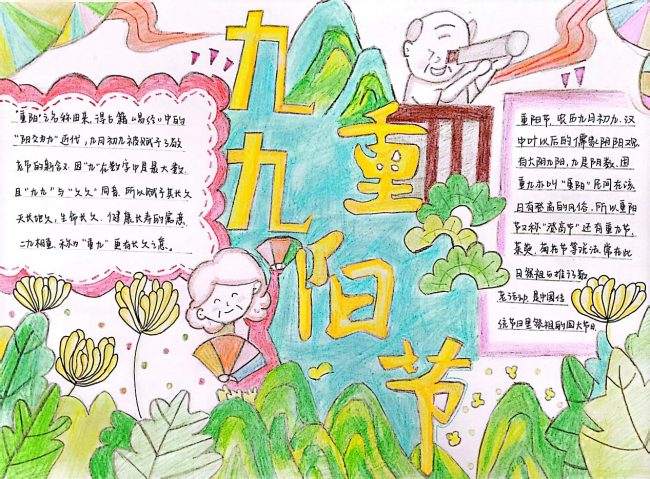 九九
重阳节
"重阳"之名称由来,得与籍《易经》中的
"阳爻为九"近代,九月初九被赋予了敬
老节的新含义.因"九"在数字中是最大数.
且"九九"与"久久"同音.所以赋予其长久
天长地久,生命长久、健康长寿的寓意.
二九相重,称为"重九"更有长久之意。
重阳节,农历九月初九.汉
中叶以后的儒家阴阳观.
有六阴九阳,九是阳数,固
重九亦叫"重阳"民间在该
日有登高的风俗,所以重阳
节又称"登高节"还有重九节,
茱萸、菊花节等说法.常在此
日祭祖与推行敬
老活动.是中国传
统节日里祭祖的四大节日.